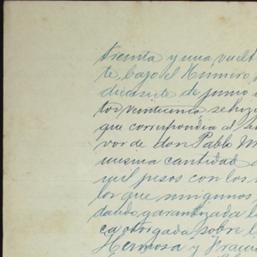 treinta y una vuelt
te, bajo el Número
diecisiete de junio
tos veinticinco se hizo
que correspondia al
vor de don Pablo M
misma cantidad
mil pesos con los
lor que ningunos
tando garantizada l
ca otorgada sobre l
Hermosa y Francis